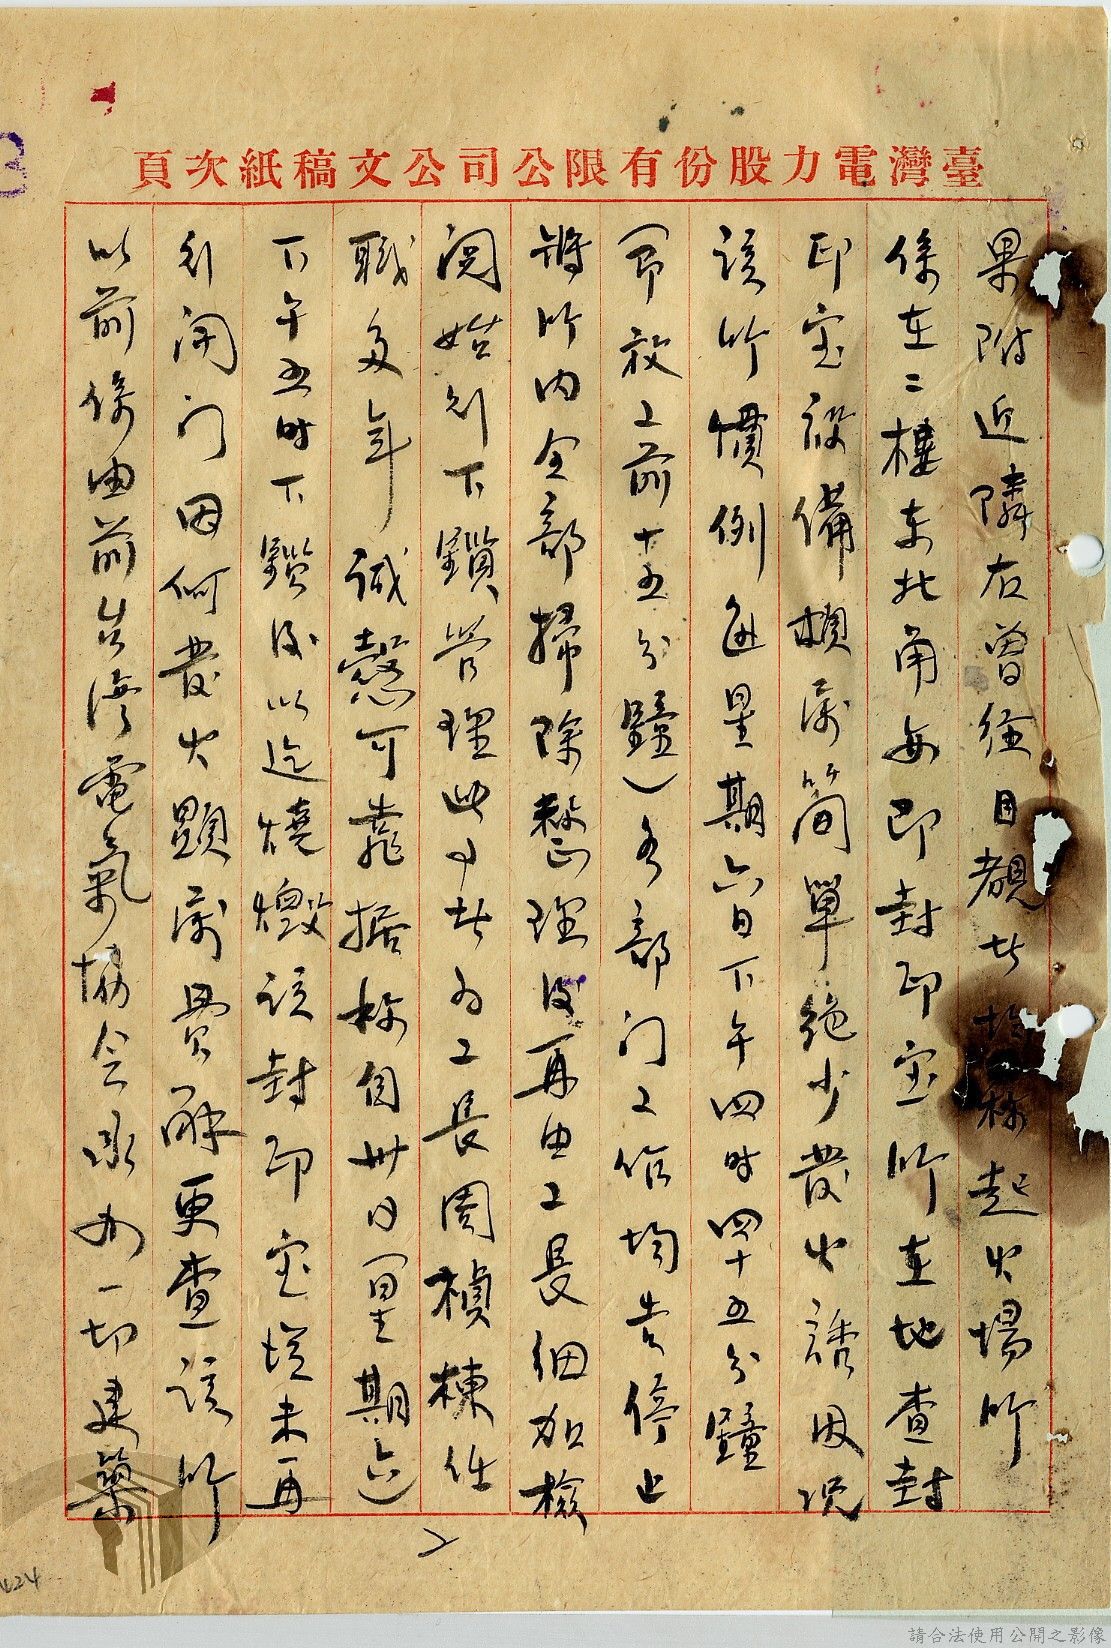 臺灣電力股份有限公司公文稿紙次頁
果附近隣右曾經目覩此指称起火場所
係在二樓東北角每即封印室所在地查封
印室設備頗為簡單絶少發火誘因况
該所慣例逢星期六日下午四時四十五分鐘
(即放工前十五分鐘)各部门工作均告停止
將所内全部掃除整理後再由工長細加檢
閲始行下鎖管理此事者為工長周楨棟任
職多年诚懇可靠据称自卅日(星期六)
下午五時下鎖後以迄燒燬該封印室從未再
行開门因何發火顯為費解更查該所
以前係由前台湾電氣協会承办一切建築
2
424
請合法使用公開之影像